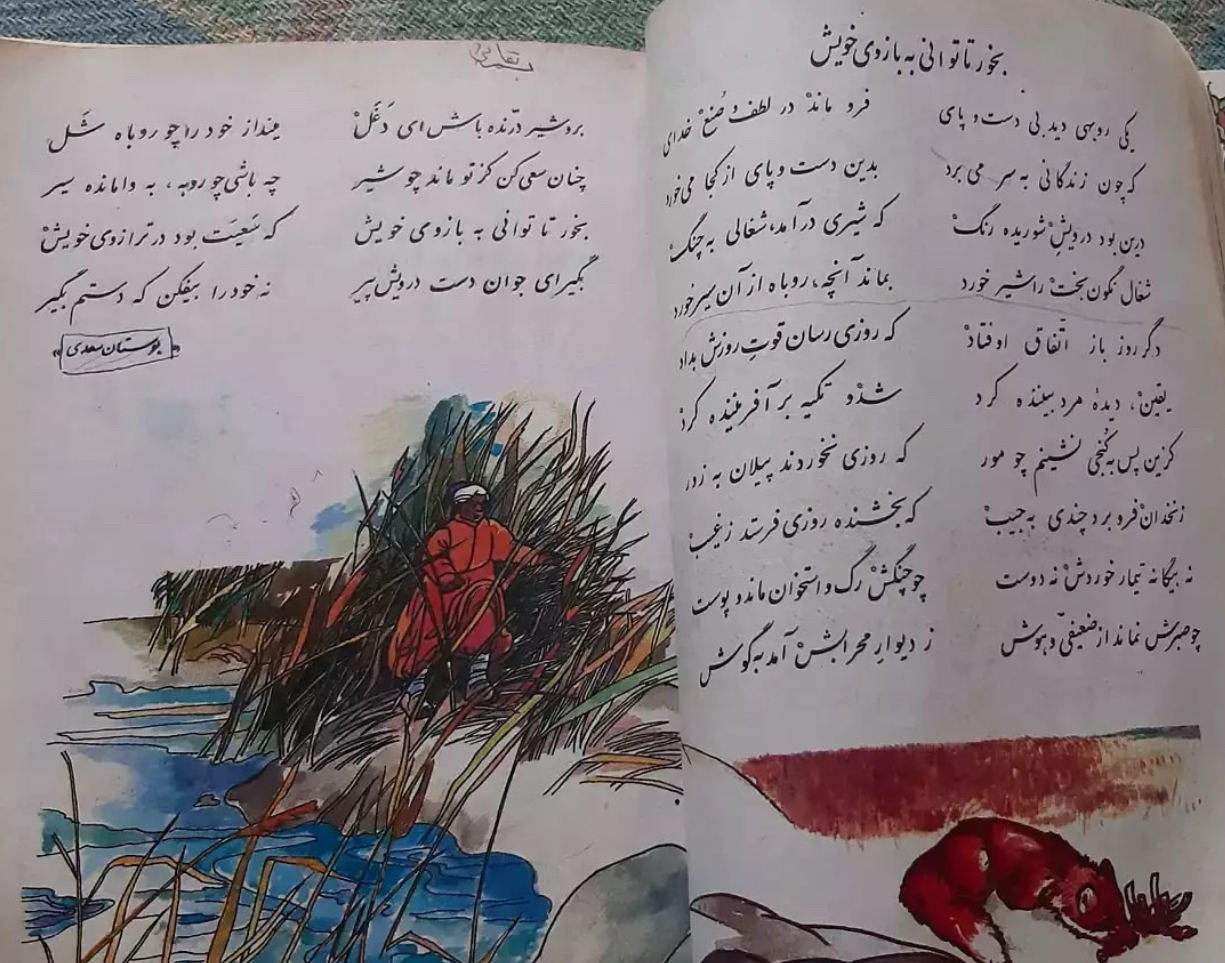 بخور تا توانی به بازوی خویش
یکی روبهی دید بی دست و پای فرو ماندْ در لطف و صُنعْ خدای
که چون زندگانی به سر می برد بدین دست و پای از کجا می خورد
درین بود درویشِ شوریده رنگْ که شیری درآمد، شغالی به چنگْ
شغال نگون بختْ را شیر خورد بماند آنچه، روباه از آن سیر خورد
دگر روز باز اتّفاق اوفتادْ که روزی رسان قوتِ روزش بداد
یقینْ، دیدهٔ مرد بیننده کرد شدْ و تکیه بر آفریننده کردْ
کزین پس به کُنجی نشینم چو مور که روزی نخوردند پیلان به زور
زنخدانْ فرو برد چندی به جیبْ که بخشنده روزی فرستد ز غیبْ
نه بیگانه تیمار خوردشْ نه دوست چو چنگشْ رگ و استخوان ماند و پوست
چو صبرش نماند از ضعیفیّ و هوش ز دیوارِ محرابشْ آمد به گوش
برو شیر درّنده باش ای دَغَلْ مینداز خود را چو روباه شَل
چنان سعی کن کز تو ماند چو شیر چه باشی چو روبه، به وامانده سیر
بخور تا توانی به بازوی خویش که سَعیَت بود در ترازوی خویشْ
بگیر ای جوان دست درویش پیر نه خود را بیفکن که دستم بگیر
«بوستان سعدی»